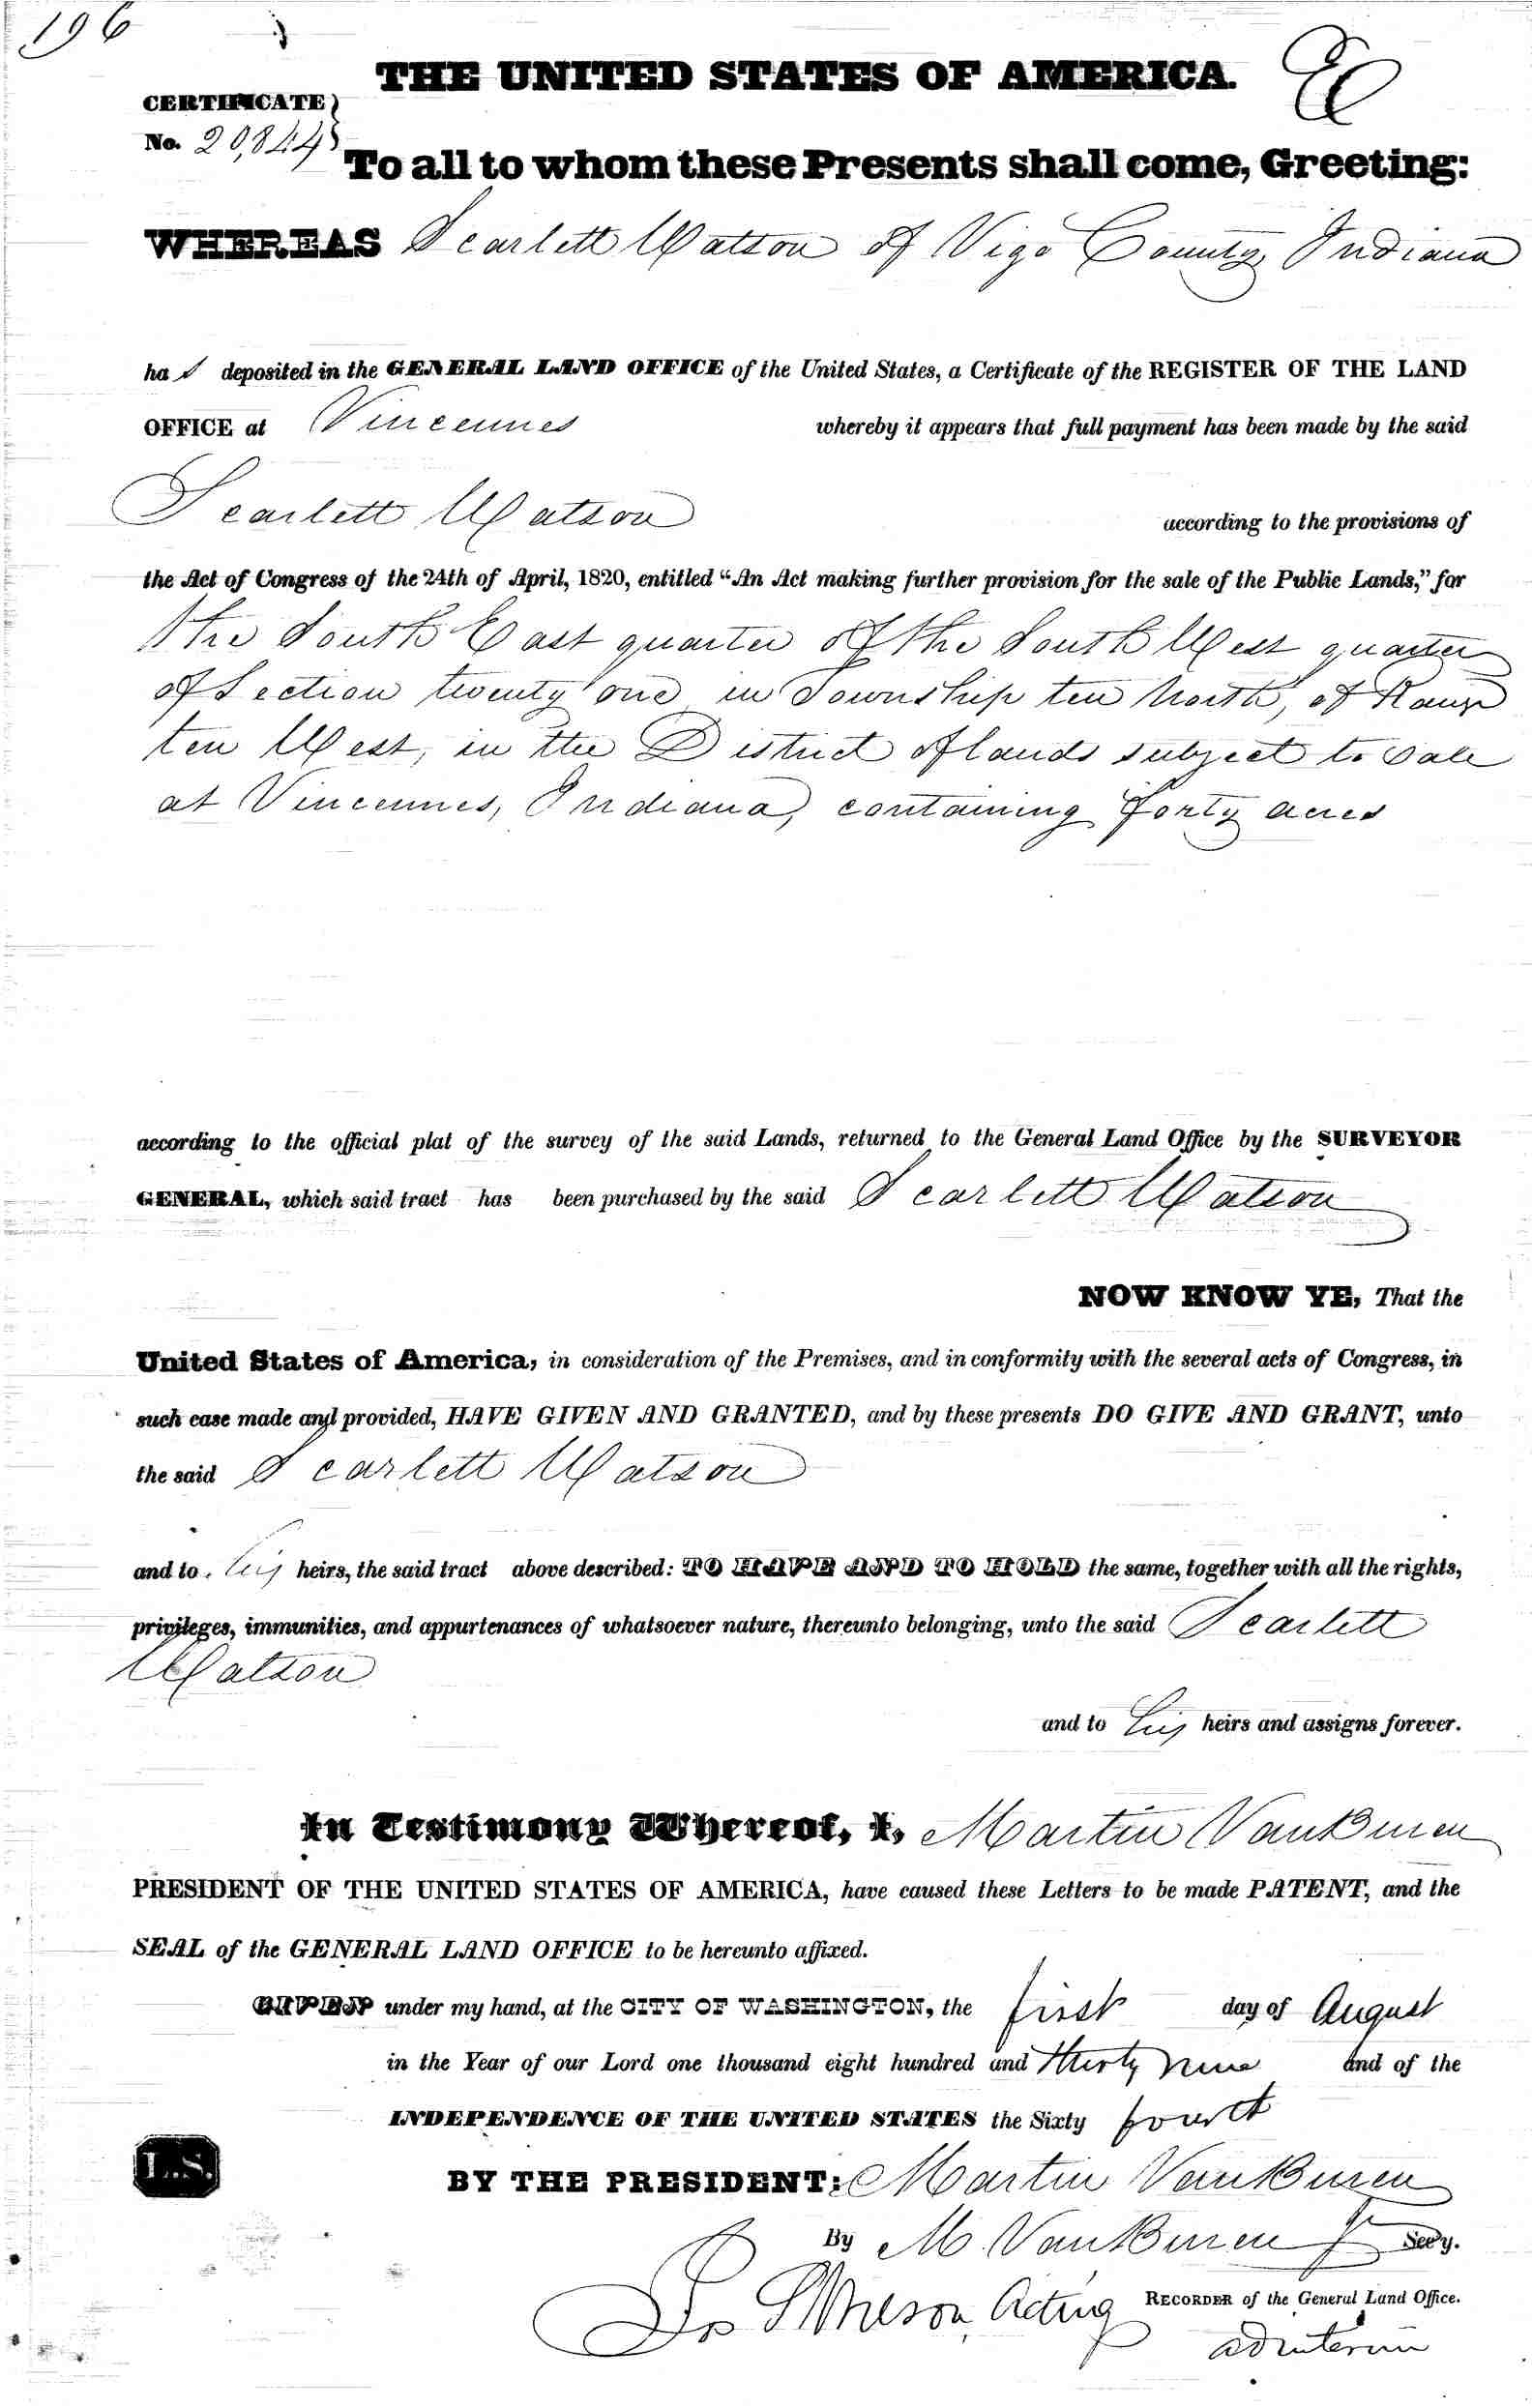 196
THE UNITED STATES OF AMERICA.
CERTIFICATE
No. 20,844
To all to whom these Presents shall come, Greeting:
WHEREAS Scarlett Watson of Vigo County, Indiana
has deposited in the GENERAL LAND OFFICE of the United States, a Certificate of the REGISTER OF THE LAND
OFFICE at Vincennes whereby it appears that full payment has been made by the said
Scarlett Watson according to the provisions of
the Act of Congress of the 24th of April, 1820, entitled “An Act making further provision for the sale of the Public Lands,” for
the South East quarter of the South West quarter
of Section twenty one in Township ten North, of Range
ten West, in the District of lands subject to sale
at Vincennes, Indiana, containing forty acres
according to the official plat of the survey of the said Lands, returned to the General Land Office by the SURVEYOR
GENERAL, which said tract has been purchased by the said Scarlett Watson
NOW KNOW YE, That the
United States of America, in consideration of the Premises, and in conformity with the several acts of Congress, in
such case made and provided, HAVE GIVEN AND GRANTED, and by these presents DO GIVE AND GRANT, unto
the said Scarlett Watson
and to his heirs, the said tract above described: TO HAVE AND TO HOLD the same, together with all the rights,
privileges, immunities, and appurtenances of whatsoever nature, thereunto belonging, unto the said Scarlett
Watson
and to his heirs and assigns forever.
In Testimony Whereof, I, Martin Van Buren
PRESIDENT OF THE UNITED STATES OF AMERICA, have caused these Letters to be made PATENT, and the
SEAL of the GENERAL LAND OFFICE to be hereunto affixed.
GIVEN under my hand, at the CITY OF WASHINGTON, the first day of August
in the Year of our Lord one thousand eight hundred and thirty nine and of the
INDEPENDENCE OF THE UNITED STATES the Sixty fourth
L.S.
BY THE PRESIDENT: Martin Van Buren
By M. Van Buren Jr Sec'y.
Jos S Wilson, Acting RECORDER of the General Land Office.
ad interim